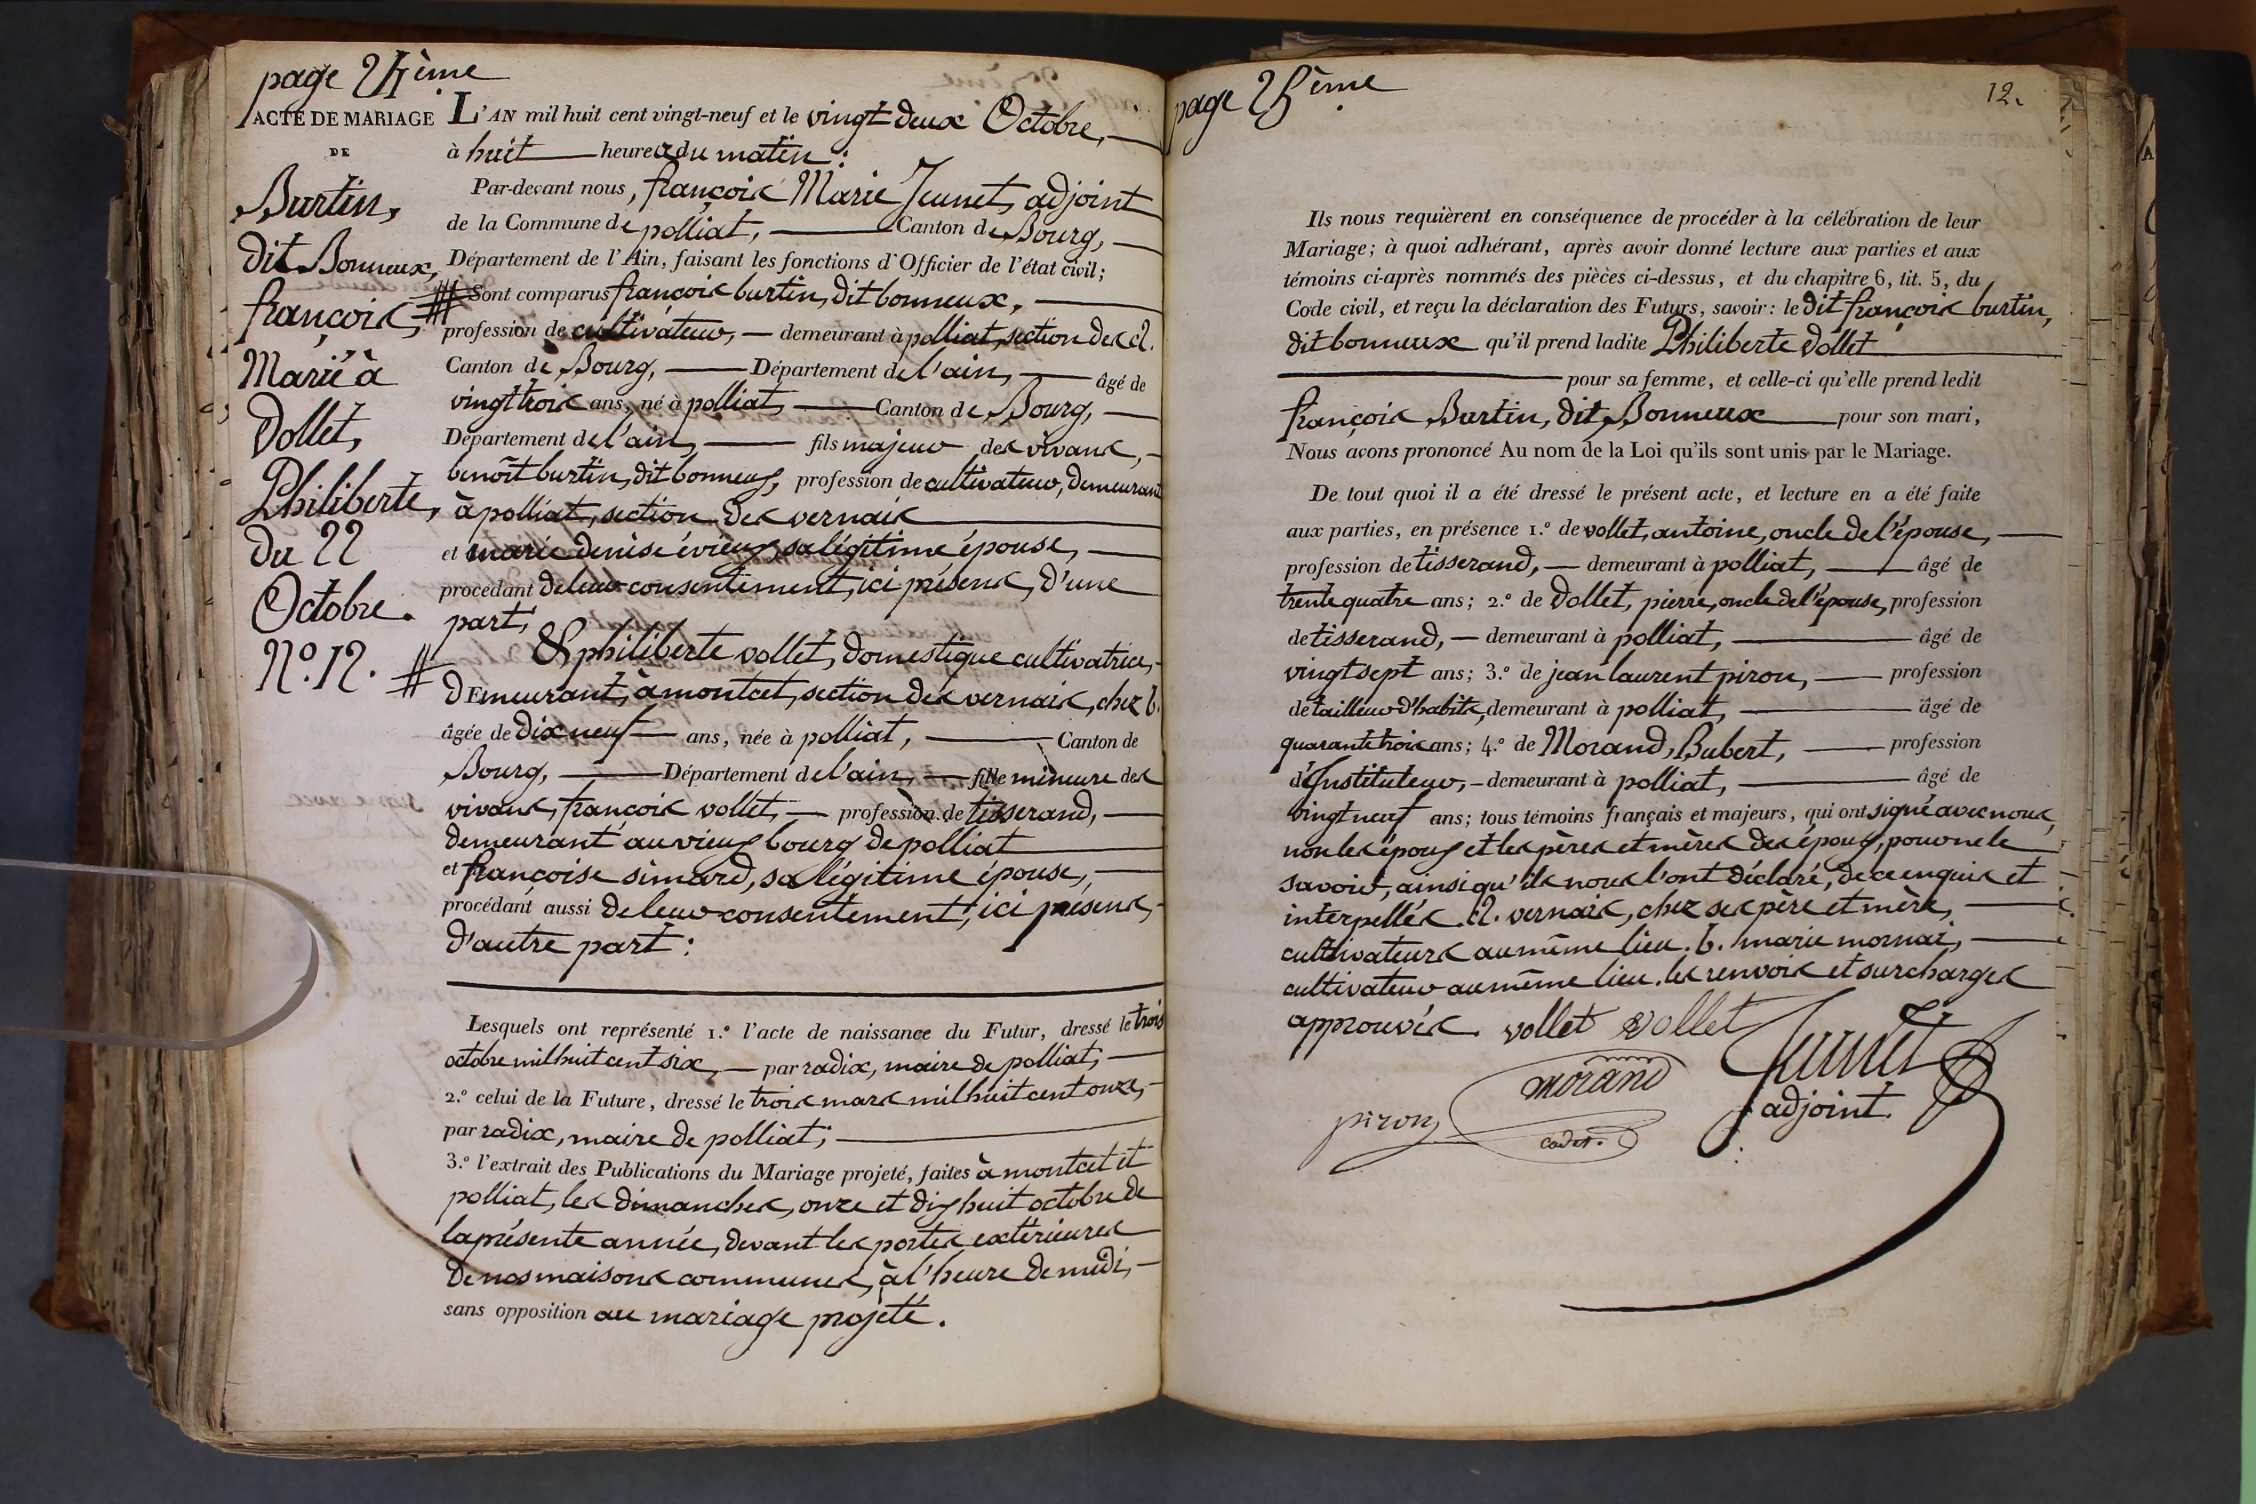 page 24ème
ACTE DE MARIAGE
DE
Burtin,
dit Bonneux,
françois,
Marié à
Vollet,
Philiberte,
du 22
Octobre.
N.º 12.
L'AN mil huit cent vingt-neuf et le vingt deux Octobre,
à huit heures du matin :
Par-devant nous, françois Marie Jeunet, adjoint
de la Commune de polliat, Canton de Bourg,
Département de l'Ain, faisant les fonctions d'Officier de l'état civil ;
Sont comparus françois burtin, dit bonneux,
profession de cultivateur, demeurant à polliat, section des a.
Canton de Bourg, Département de l'ain, âgé de
vingt trois ans, né à polliat, Canton de Bourg,
Département de l'ain, fils majeur des vivans,
benoît burtin, dit bonneux, profession de cultivateur, demeurant
à polliat, section des vernais
et marie denise évieux, sa légitime épouse,
procédant de leur consentement, ici présens, d'une
part,
Et philiberte vollet, domestique cultivatrice,
demeurant, à montcet, section des vernais, chez b.
âgée de dix neuf ans, née à polliat, Canton de
Bourg, Département de l'ain, fille mineure des
vivans, françois vollet, profession de tisserand,
demeurant au vieux bourg de polliat
et françoise simard, sa légitime épouse,
procédant aussi de leur consentement, ici présens,
d'autre part :
Lesquels ont représenté 1.º l'acte de naissance du Futur, dressé le trois
octobre mil huit cent six, par radix, maire de polliat,
2.º celui de la Future, dressé le trois mars mil huit cent onze,
par radix, maire de polliat ;
3.º l'extrait des Publications du Mariage projeté, faites à montcet et
polliat, les dimanches, onze et dix huit octobre de
la présente année, devant les portes extérieures
de nos maisons communes, à l'heure de midi,
sans opposition au mariage projeté.
page 25ème
12.
Ils nous requièrent en conséquence de procéder à la célébration de leur
Mariage ; à quoi adhérant, après avoir donné lecture aux parties et aux
témoins ci-après nommés des pièces ci-dessus, et du chapitre 6, tit. 5, du
Code civil, et reçu la déclaration des Futurs, savoir : le dit françois burtin,
dit bonneux qu'il prend ladite Philiberte Vollet
pour sa femme, et celle-ci qu'elle prend ledit
françois Burtin, dit Bonneux pour son mari,
Nous avons prononcé Au nom de la Loi qu'ils sont unis par le Mariage.
De tout quoi il a été dressé le présent acte, et lecture en a été faite
aux parties, en présence 1.º de vollet, antoine, oncle de l'épouse,
profession de tisserand, demeurant à polliat, âgé de
trente quatre ans ; 2.º de Vollet, pierre, oncle de l'épouse, profession
de tisserand, demeurant à polliat, âgé de
vingt sept ans ; 3.º de jean laurent piron, profession
de tailleur d'habits, demeurant à polliat, âgé de
quarante trois ans ; 4.º de Morand, Bubert, profession
d'Instituteur, demeurant à polliat, âgé de
vingt neuf ans ; tous témoins français et majeurs, qui ont signé avec nous,
non les époux et les pères et mères des époux, pour ne le
savoir, ainsi qu'ils nous l'ont déclaré, de ce enquis et
interpellés. a. vernais, chez ses père et mère,
cultivateurs au même lieu. b. marie mornai,
cultivateur au même lieu. les renvois et surcharges
approuvés. vollet vollet
Jeunet
adjoint.
morand
cadet.
piron